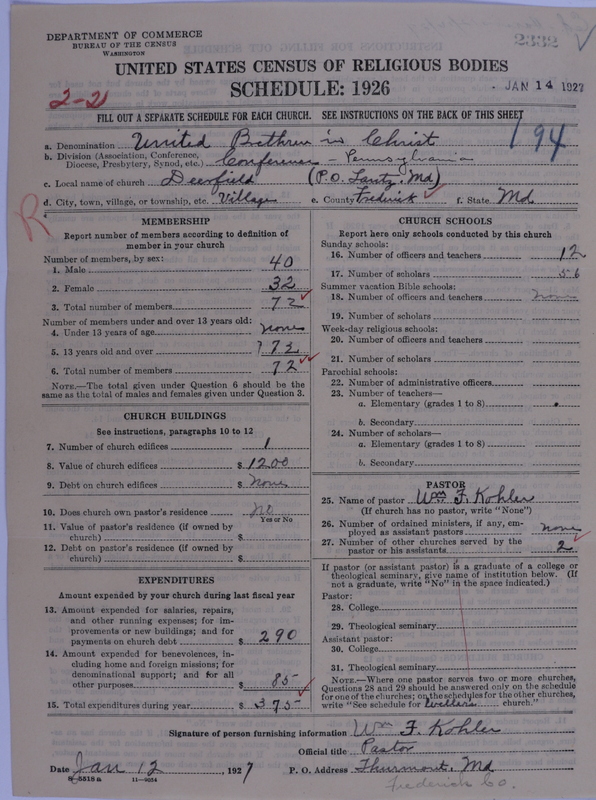 DEPARTMENT OF COMMERCE
BUREAU OF THE CENSUS
WASHINGTON
2332
UNITED STATES CENSUS OF RELIGIOUS BODIES
SCHEDULE: 1926
JAN 14 1927
2-21
FILL OUT A SEPARATE SCHEDULE FOR EACH CHURCH. SEE INSTRUCTIONS ON THE BACK OF THIS SHEET
194
a. Denomination United Bethren in Christ
b. Division (Association, Conference, Diocese, Presbytery, Synod, etc.) Conference - Pennsylvania
c. Local name of church Deerfield (P.O. Lantz, Md)
d. City, town, village, or township, etc. Village e. County Frederick f. State Md
R
MEMBERSHIP
Report number of members according to definition of
member in your church
Number of members, by sex:
1. Male 40
2. Female 32
3. Total number of members 72
Number of members under and over 13 years old:
4. Under 13 years of age none
5. 13 years old and over 72
6. Total number of members 72
NOTE.—The total given under Question 6 should be the
same as the total of males and females given under Question 3.
CHURCH BUILDINGS
See instructions, paragraphs 10 to 12
7. Number of church edifices 1
8. Value of church edifices $ 1200
9. Debt on church edifices $ None
10. Does church own pastor's residence no
Yes or No
11. Value of pastor's residence (if owned by
church) $
12. Debt on pastor's residence (if owned by
church) $
EXPENDITURES
Amount expended by your church during last fiscal year
13. Amount expended for salaries, repairs,
and other running expenses; for im-
provements or new buildings; and for
payments on church debt $ 290
14. Amount expended for benevolences, in-
cluding home and foreign missions; for
denominational support; and for all
other purposes $ 85
15. Total expenditures during year $ 375
CHURCH SCHOOLS
Report here only schools conducted by this church
Sunday schools:
16. Number of officers and teachers 12
17. Number of scholars 56
Summer vacation Bible schools:
18. Number of officers and teachers none
19. Number of scholars
Week-day religious schools:
20. Number of officers and teachers
21. Number of scholars
Parochial schools:
22. Number of administrative officers
23. Number of teachers—
a. Elementary (grades 1 to 8)
b. Secondary
24. Number of scholars—
a. Elementary (grades 1 to 8)
b. Secondary
PASTOR
25. Name of pastor Wm F. Kohler
(If church has no pastor, write "None")
26. Number of ordained ministers, if any, em-
ployed as assistant pastors none
27. Number of other churches served by the
pastor or his assistants 2
If pastor (or assistant pastor) is a graduate of a college or
theological seminary, give name of institution below. (If
not a graduate, write "No" in the space indicated.)
Pastor:
28. College
29. Theological seminary
Assistant pastor:
30. College
31. Theological seminary
NOTE.—Where one pastor serves two or more churches,
Questions 28 and 29 should be answered only on the schedule
for one of the churches; on the schedules for the other churches,
write "See schedule for church."
Signature of person furnishing information Wm F. Kohler
Official title Pastor
Date Jan 12, 1927 P. O. Address Thurmont, Md
8-5518a 11-9034
Frederick Co.